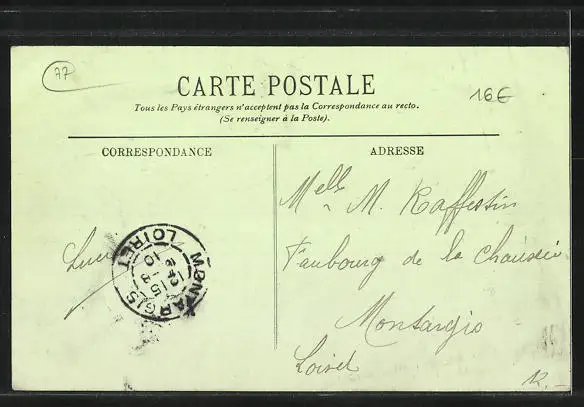 77
CARTE POSTALE
16€
Tous les Pays étrangers n'acceptent pas la Correspondance au recto.
(Se renseigner à la Poste).
CORRESPONDANCE
ADRESSE
Melle M. Raffestin
Faubourg de la Chaussée
Montargis
Loiret
MONTARGIS
LOIRET
12 15
10
12.-